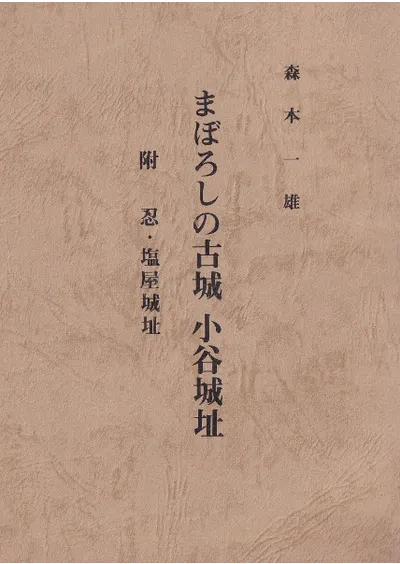 森本一雄
まぼろしの古城 小谷城址
附 忍・塩屋城址